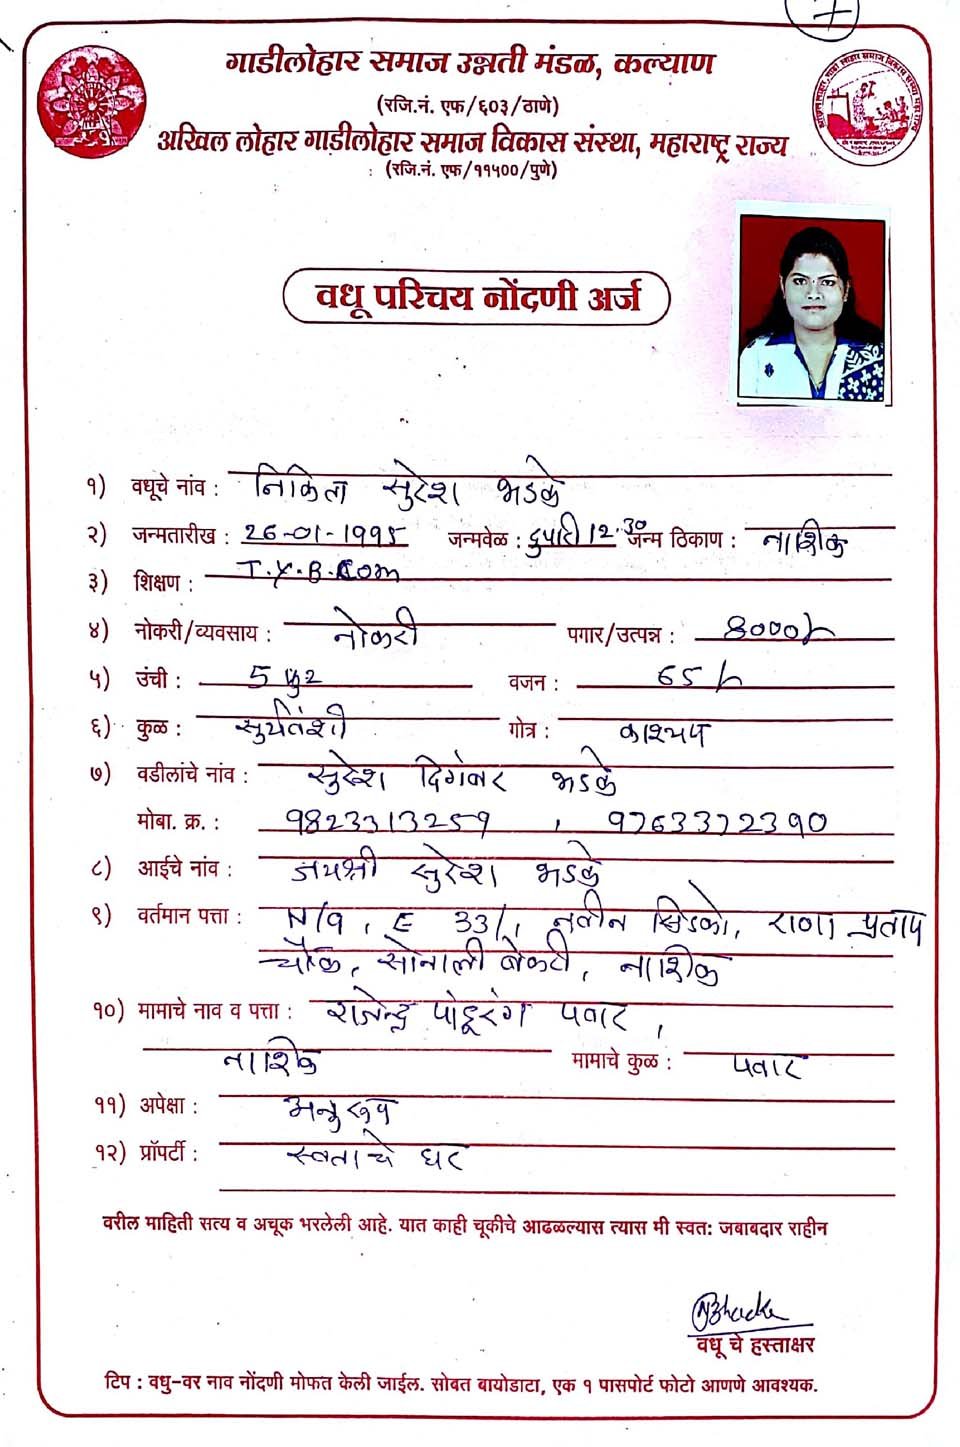 7
गाडीलोहार समाज उन्नती मंडळ, कल्याण
(रजि.नं. एफ/६०३/ठाणे)
अखिल लोहार गाडीलोहार समाज विकास संस्था, महाराष्ट्र राज्य
(रजि.नं. एफ/११५००/पुणे)
वधू परिचय नोंदणी अर्ज
१) वधूचे नांव : निकिता सुरेश भडके
२) जन्मतारीख : 26-01-1995 जन्मवेळ : दुपारी 12.30 जन्म ठिकाण : नाशिक
३) शिक्षण : T.Y.B.Com
४) नोकरी/व्यवसाय : नोकरी पगार/उत्पन्न : 8000/-
५) उंची : 5 फुट वजन : 65
६) कुळ : सुर्यवंशी गोत्र : काश्यप
७) वडीलांचे नांव : सुरेश दिगंबर भडके
मोबा. क्र. : 9823313259 , 9763372390
८) आईचे नांव : जयश्री सुरेश भडके
९) वर्तमान पत्ता : N/9, E 33/, नवीन सिडको, राणा प्रताप
चौक, सोनाली बेकरी, नाशिक
१०) मामाचे नाव व पत्ता : राजेन्द्र पांडूरंग पवार,
नाशिक मामाचे कुळ : पवार
११) अपेक्षा : अनुरूप
१२) प्रॉपर्टी : स्वताचे घर
वरील माहिती सत्य व अचूक भरलेली आहे. यात काही चूकीचे आढळल्यास त्यास मी स्वत: जबाबदार राहीन
NBhadke
वधू चे हस्ताक्षर
टिप : वधु-वर नाव नोंदणी मोफत केली जाईल. सोबत बायोडाटा, एक १ पासपोर्ट फोटो आणणे आवश्यक.